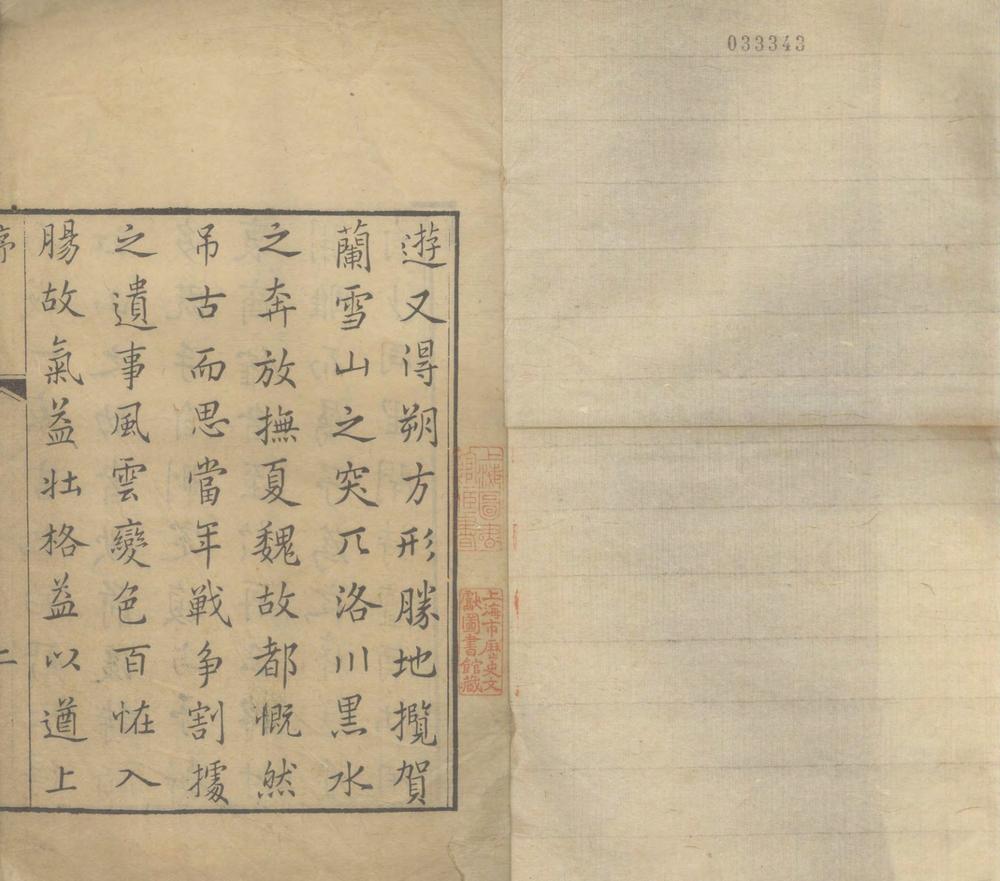 033343
遊又得朔方形勝地攬賀
蘭雪山之突兀洛川黒水
之奔放撫夏魏故都慨然
吊古而思當年戰争割據
之遺事風雲變色百恠入
腸故氣益壮格益以遒上
序
二
上海圖書
館藏書
上海市歷史文
獻圖書館藏